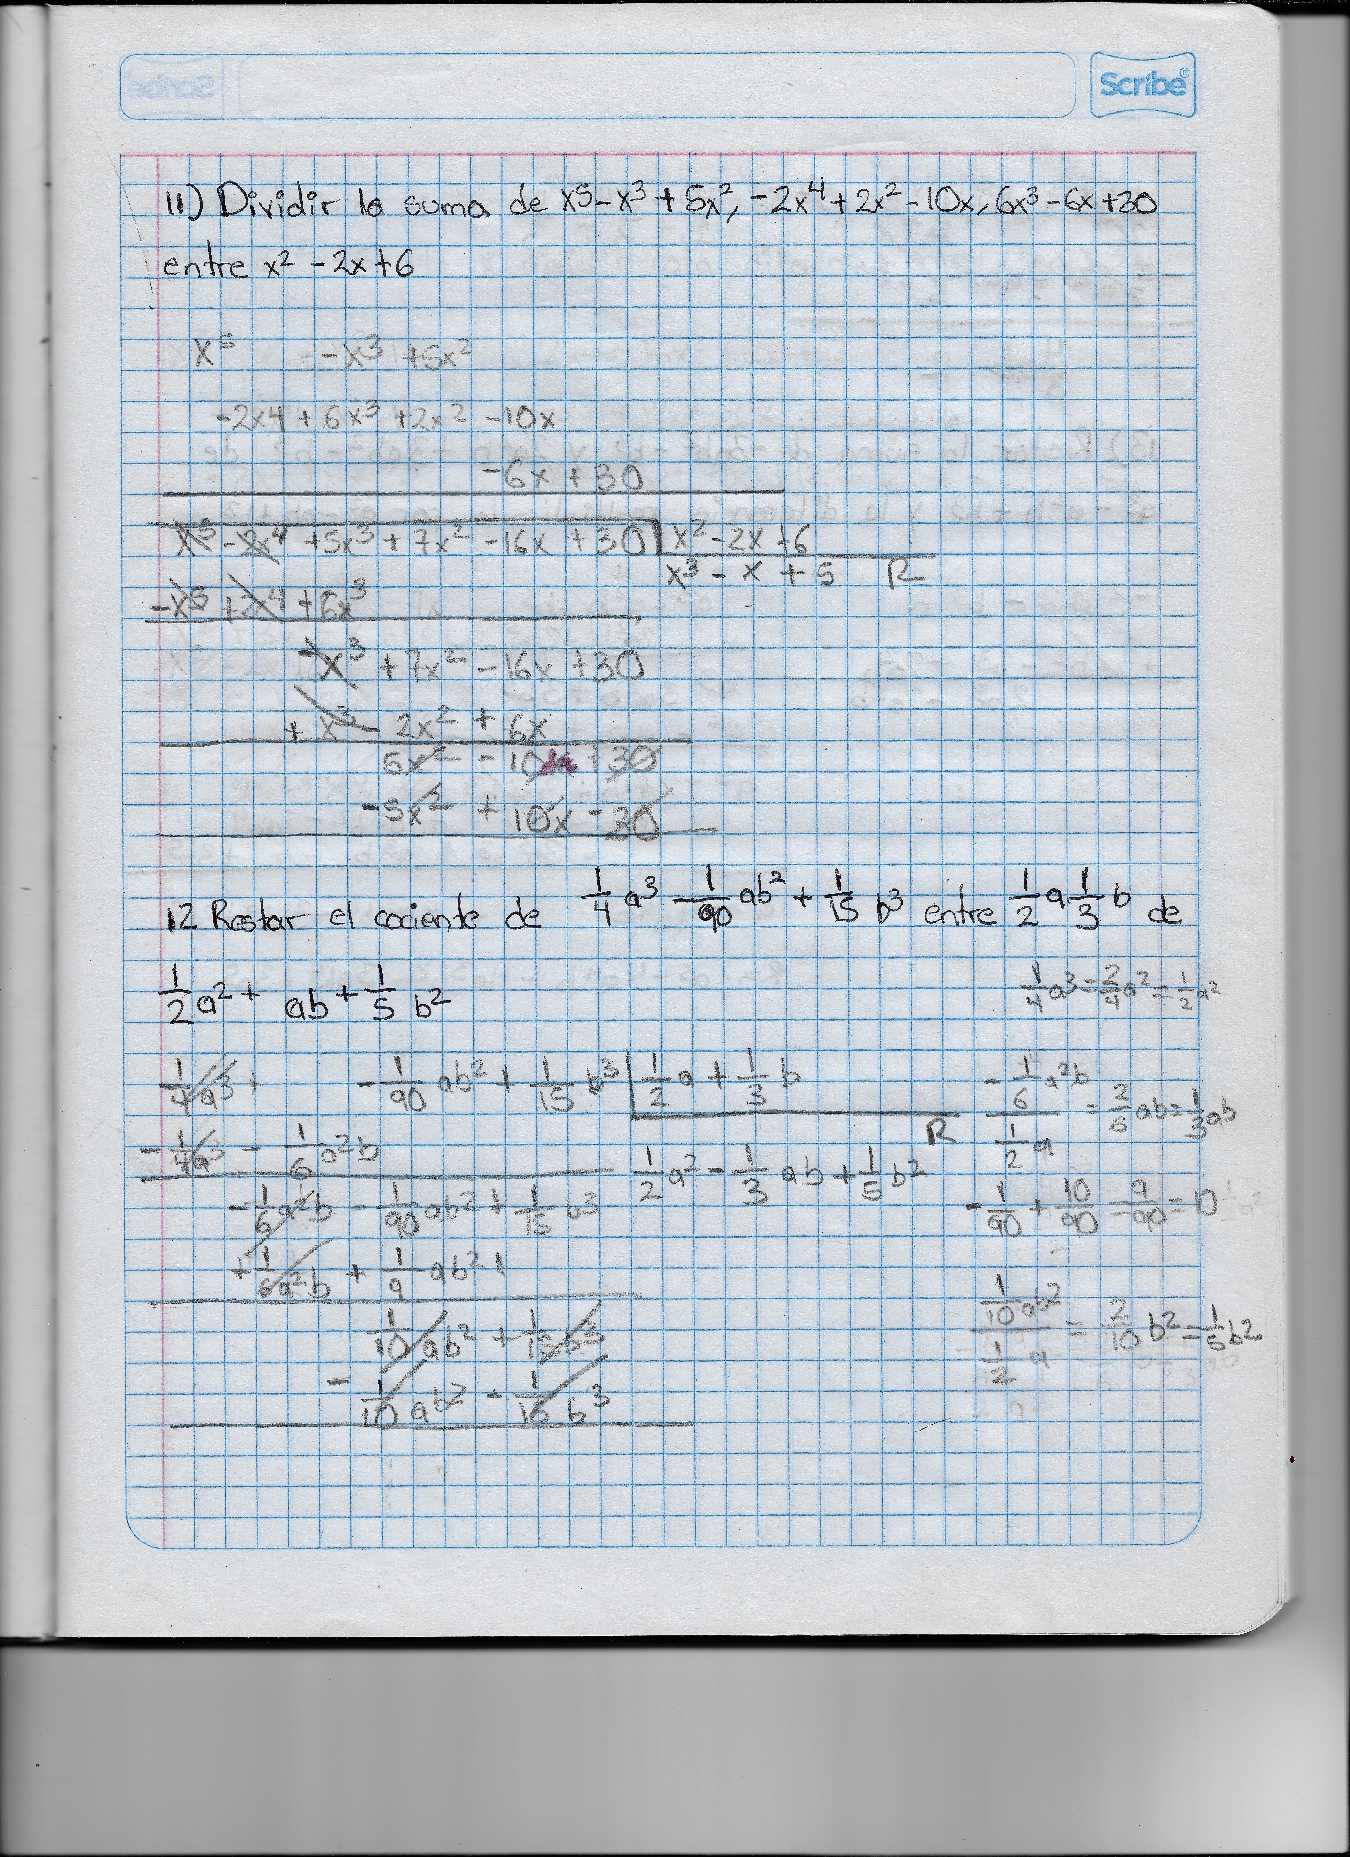 Scribe
11) Dividir la suma de x⁵-x³+5x², -2x⁴+2x²-10x, 6x³-6x+30
entre x²-2x+6
x⁵ -x³ +5x²
-2x4 + 6x³ +2x² -10x
-6x +30
x⁵ -2x⁴ +5x³ + 7x² -16x +30 | x²-2x+6
x³ - x + 5 R
-x⁵ +2x⁴ +6x³
-x³ +7x² -16x +30
+ x³ - 2x² + 6x
5x² -10x +30
-5x² + 10x - 30
12 Restar el cociente de 1/4 a³ - 1/90 ab² + 1/15 b³ entre 1/2 a 1/3 b de
1/2 a² + ab + 1/5 b²
1/4 a³ = 2/4 a² = 1/2 a²
1/4 a³ + -1/90 ab² + 1/15 b³ | 1/2 a + 1/3 b
-1/6 a²b / 1/2 a = 2/6 ab = 1/3 ab
R
-1/4 a³ - 1/6 a²b
1/2 a² - 1/3 ab + 1/5 b²
-1/6 a²b - 1/90 ab² + 1/15 b³
-1/90 + 10/90 = 9/90 = 10
+1/6 a²b + 1/9 ab² +
1/10 ab² + 1/15 b³
1/10 ab² / 1/2 a = 2/10 b² = 1/5 b²
- 1/10 ab² - 1/15 b³